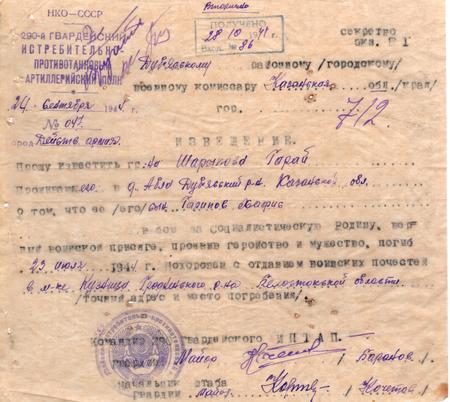 Вторично
НКО-СССР
290-й ГВАРДЕЙСКИЙ
ИСТРЕБИТЕЛЬНО
ПРОТИВОТАНКОВЫЙ
АРТИЛЛЕРИЙСКИЙ ПОЛК
ПОЛУЧЕНО
28/10 1944 г.
Вход. № 86
секретно
экз. № 1
Дубъязскому районному /городскому/
военному комиссару Казанской обл./края/
24 сентября 1944 г.
гор.
№ 047
712
Действ. армия
ИЗВЕЩЕНИЕ.
Прошу известить гр-на Шарыпова Гарай
Проживающего в д. Дубъязский р-н Казанской обл.
О том, что ее /его/ сын Гарипов Хафис
в бою за Социалистическую Родину, вер-
ный воинской присяге, проявив геройство и мужество, погиб
23 июля 1944 г. Похоронен с отданием воинских почестей
в м-ке Кузница, р-на Белостокской области
/точный адрес и место погребения/
Командир гвардейского ИПТАП.
гвардии Майор /Баранов/.
Начальник штаба
гвардии майор /Кочетов/.